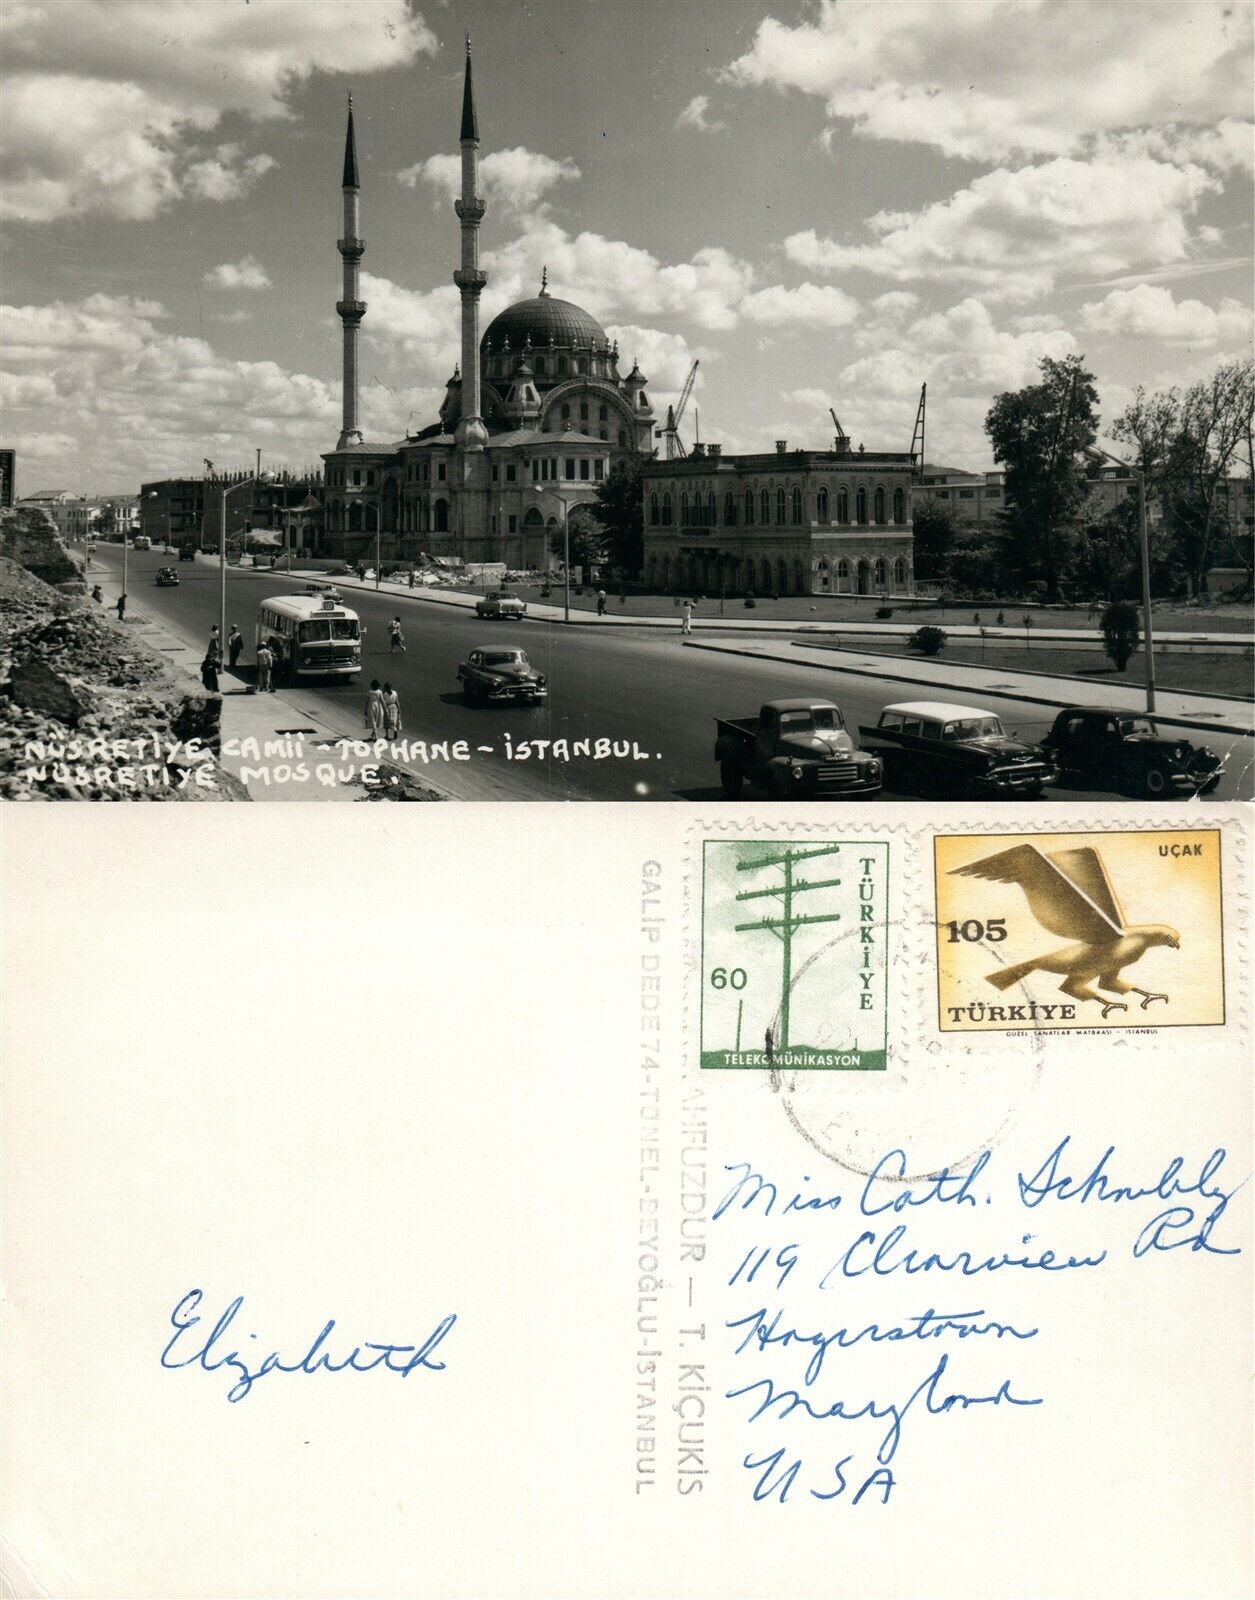 NÜSRETİYE CAMİİ - TOPHANE - İSTANBUL.
NÜSRETİYE MOSQUE.
TÜRKİYE
60
TELEKOMÜNİKASYON
UÇAK
105
TÜRKİYE
GÜZEL SANATLAR MATBAASI - İSTANBUL
AHFUZDUR — T. KİÇUKİS
GALİP DEDE 74-TÜNEL-BEYOĞLU-İSTANBUL
Elizabeth
Miss Cath. Schnubbly
119 Clearview Rd
Hagerstown
Maryland
USA